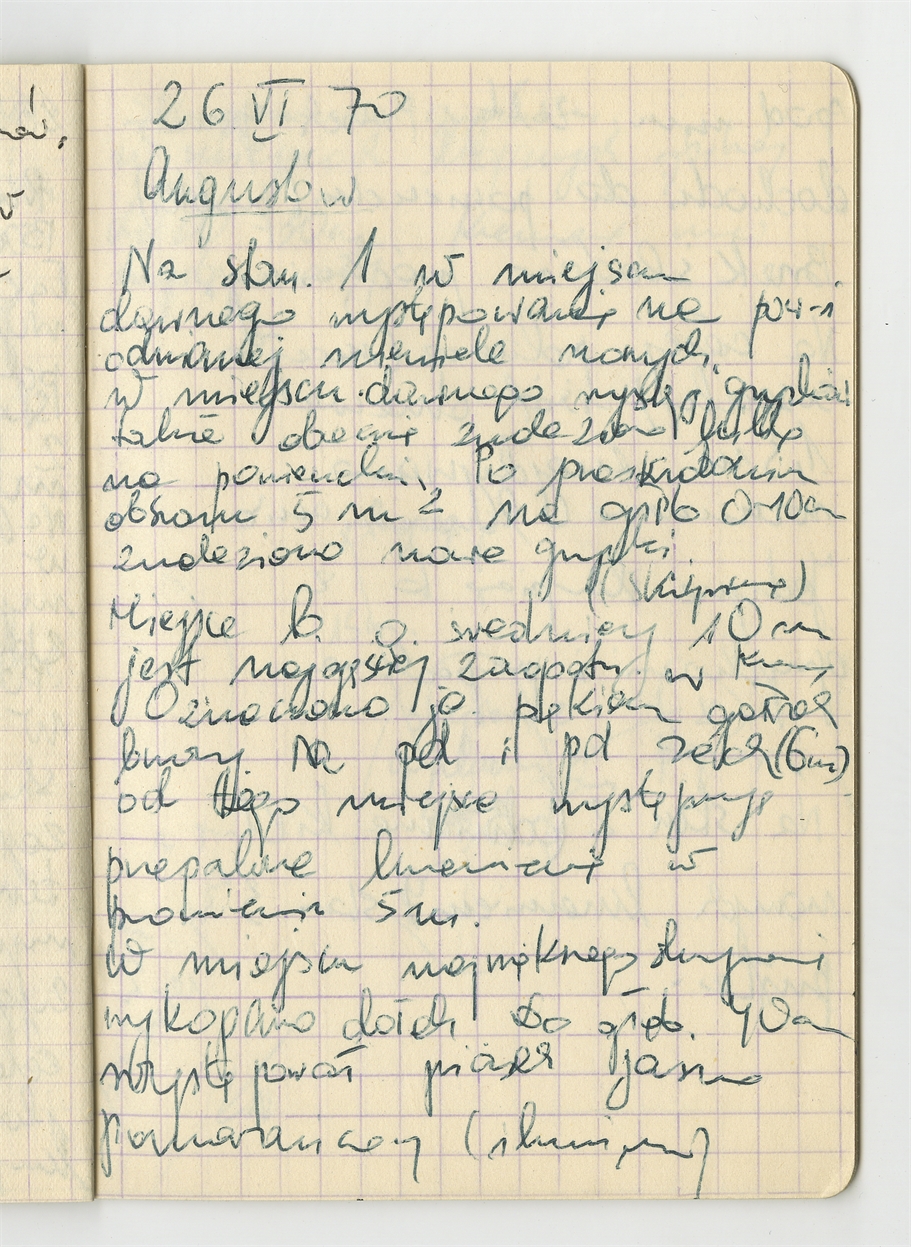 26 VI 70
Augustów
Na stan. 1 w miejscu
dawnego występowania na pow-i
odwianej niewiele nowych.
w miejscu dawnego występ. grupki
także obecnie znaleziono kilka
na powierzchni. Po przeszukaniu
obszaru 5 m² na głęb 0-10cm
znaleziono nowe grupki.
(skupienie)
Miejsce b. o średnicy 10 cm
jest najgęściej zaopatrz. w krzem.
Oznaczono je pękiem gałązek
brzozy Na płd i pd zach (6m)
od tego miejsca występuje
przepalone krzemienie w
promieniu 5m.
W miejscu największego skupienia
wykopano dołek do głęb. 40cm
występował piasek jasno
pomarańczowy